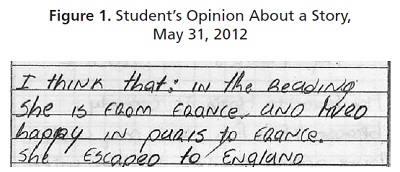 Figure 1. Student's Opinion About a Story,
May 31, 2012
I think that: in the Reading
She is from France and
happy in paris to France.
she Escaped to England